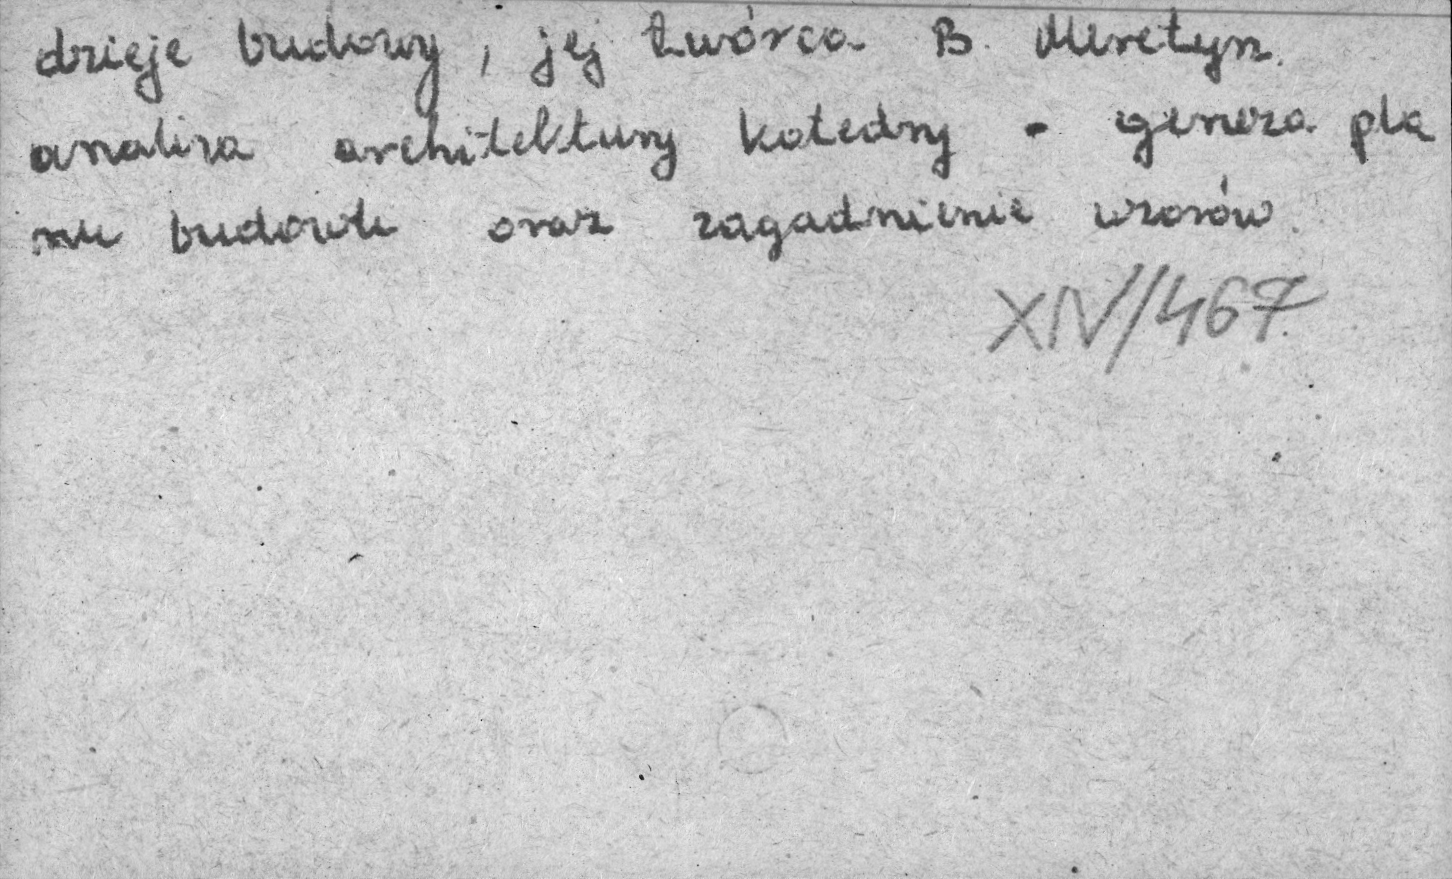 dzieje budowy, jej twórca B. Meretyn.
analiza architektury katedry - geneza pla
nu budowli oraz zagadnienie wzorów.
XIV/467